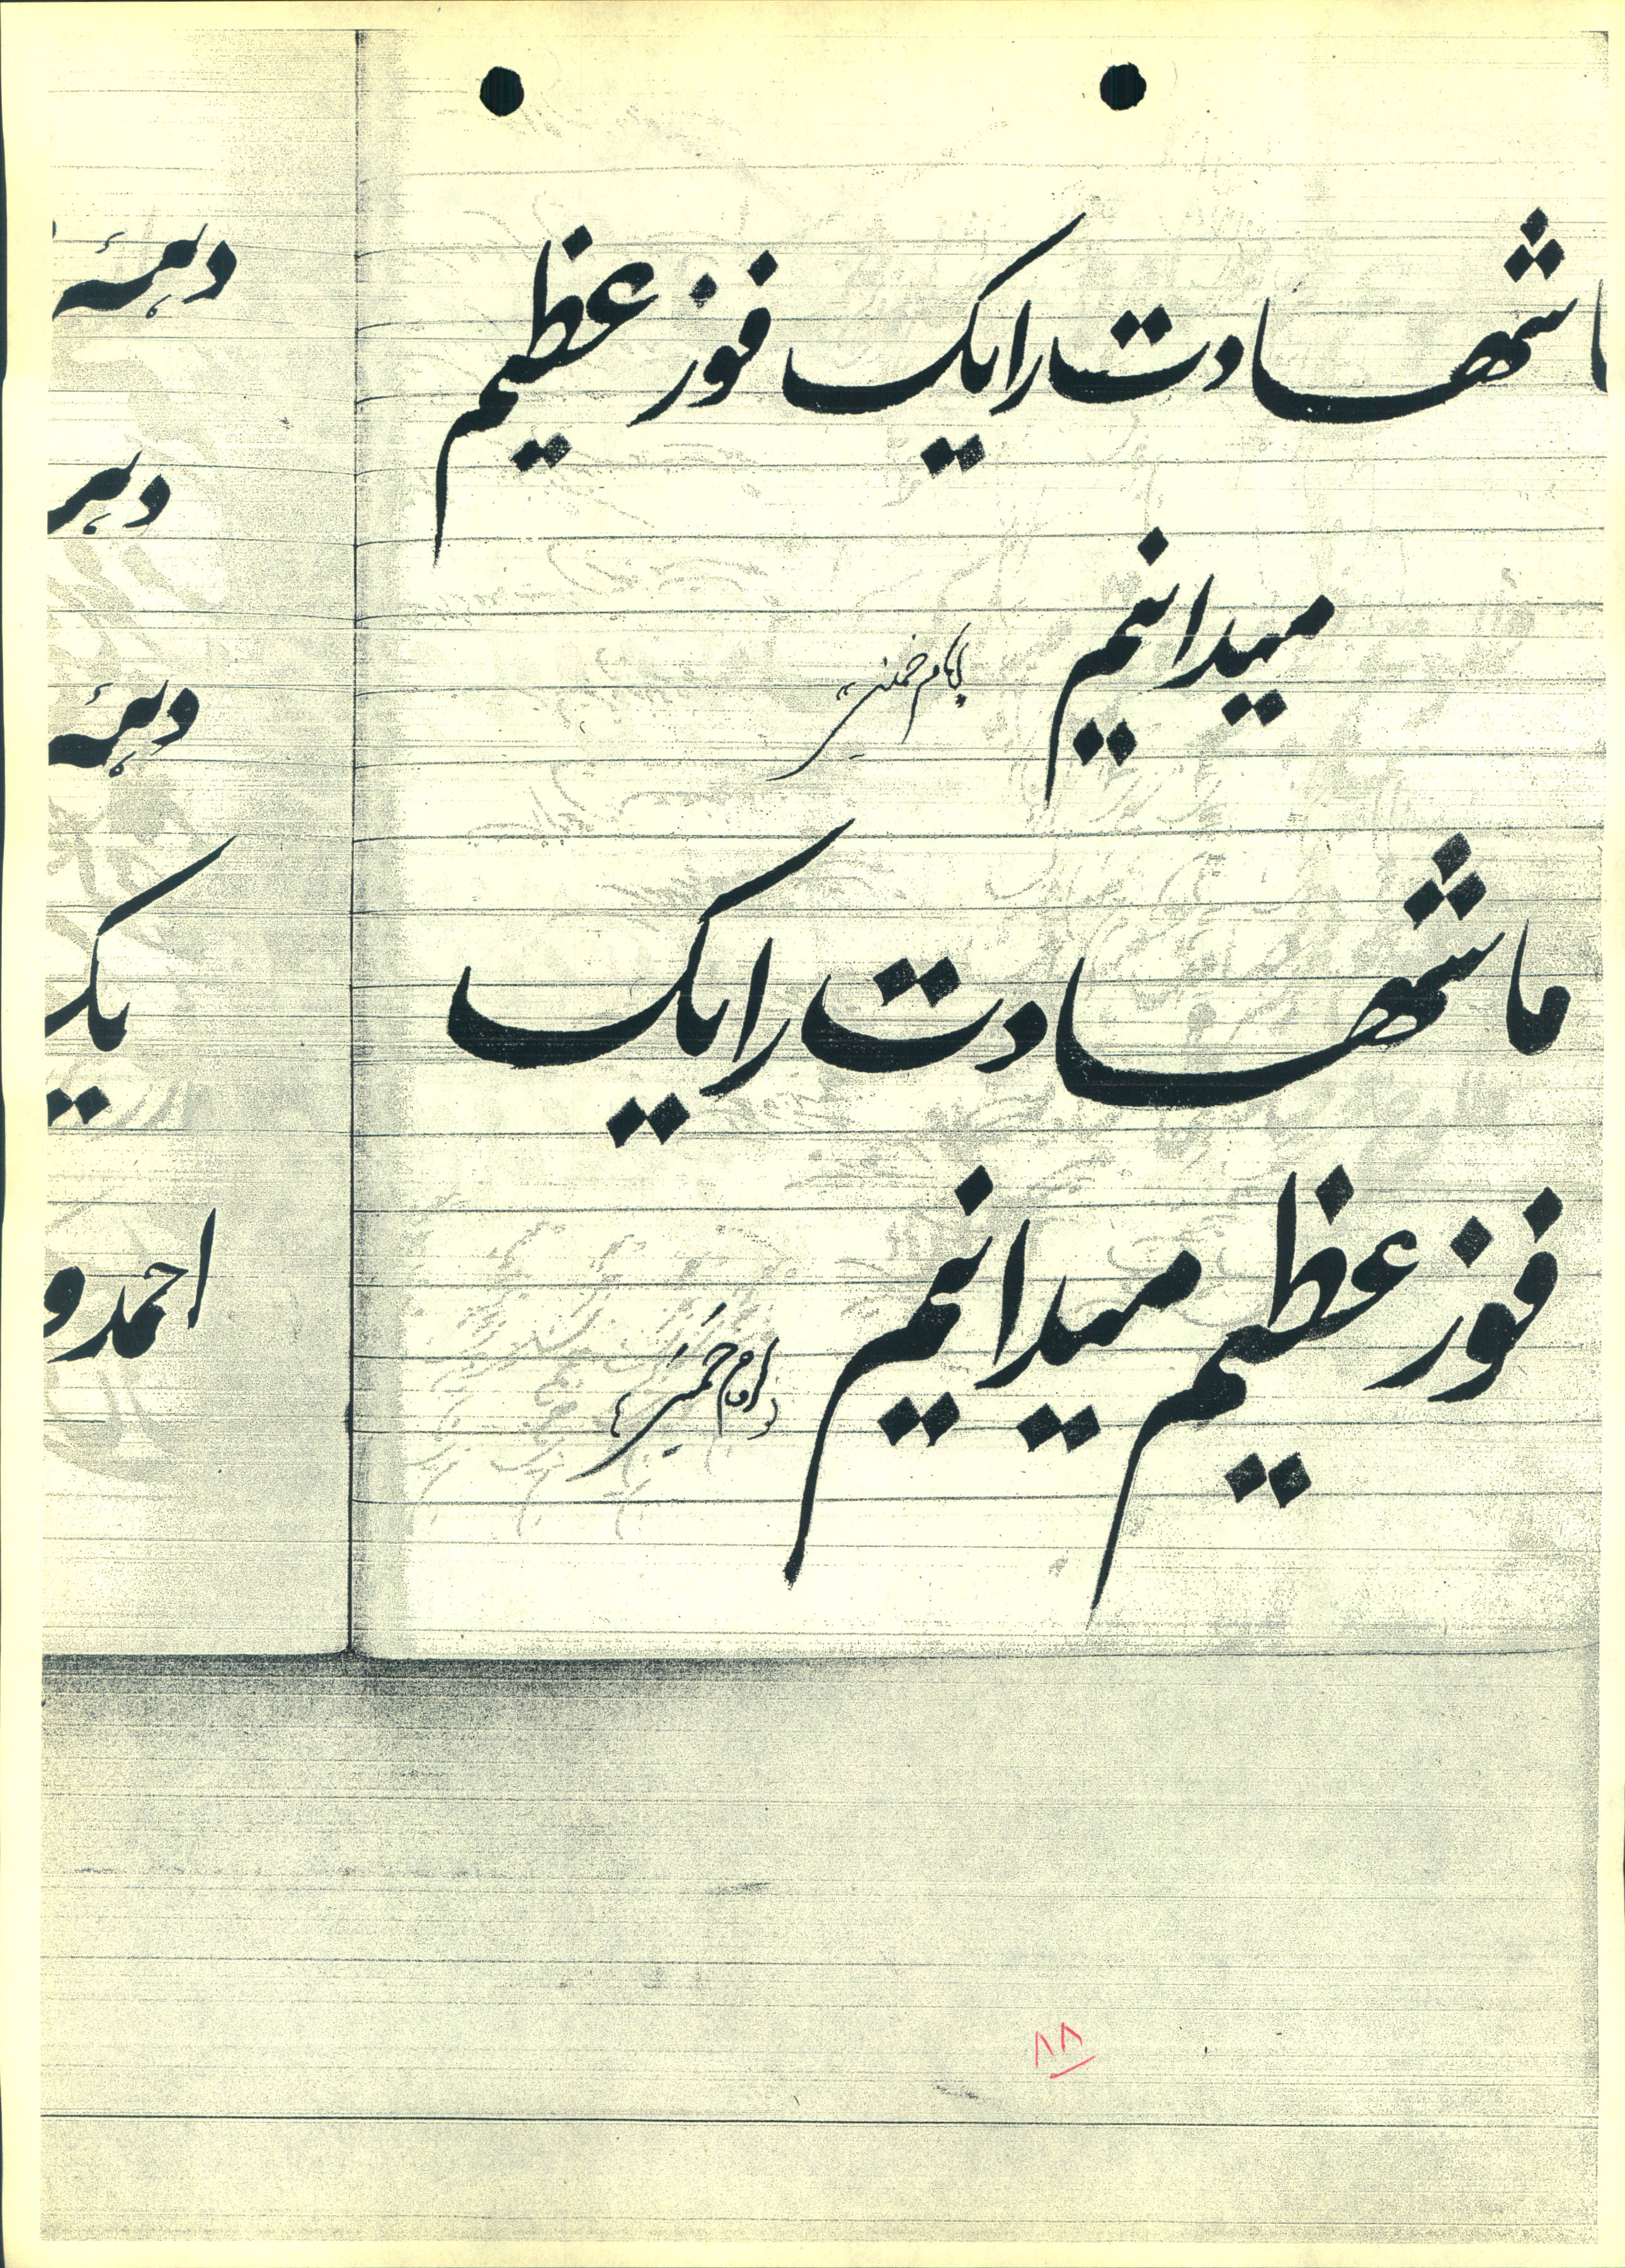 ما شهادت را یک فوز عظیم
میدانیم
امام خمینی
ما شهادت را یک
فوز عظیم میدانیم
امام خمینی
یک
احمد و
۸۸